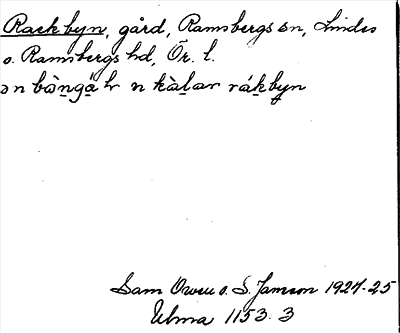 Rackbyn, gård, Ramsbergs sn, Lindes
o. Ramsbergs hd, Ör. l.
ən bàngå̈ hr n kàlar rákbyn
Sam Owen o. S. Jamson 1924-25
Ulma 1153. 3